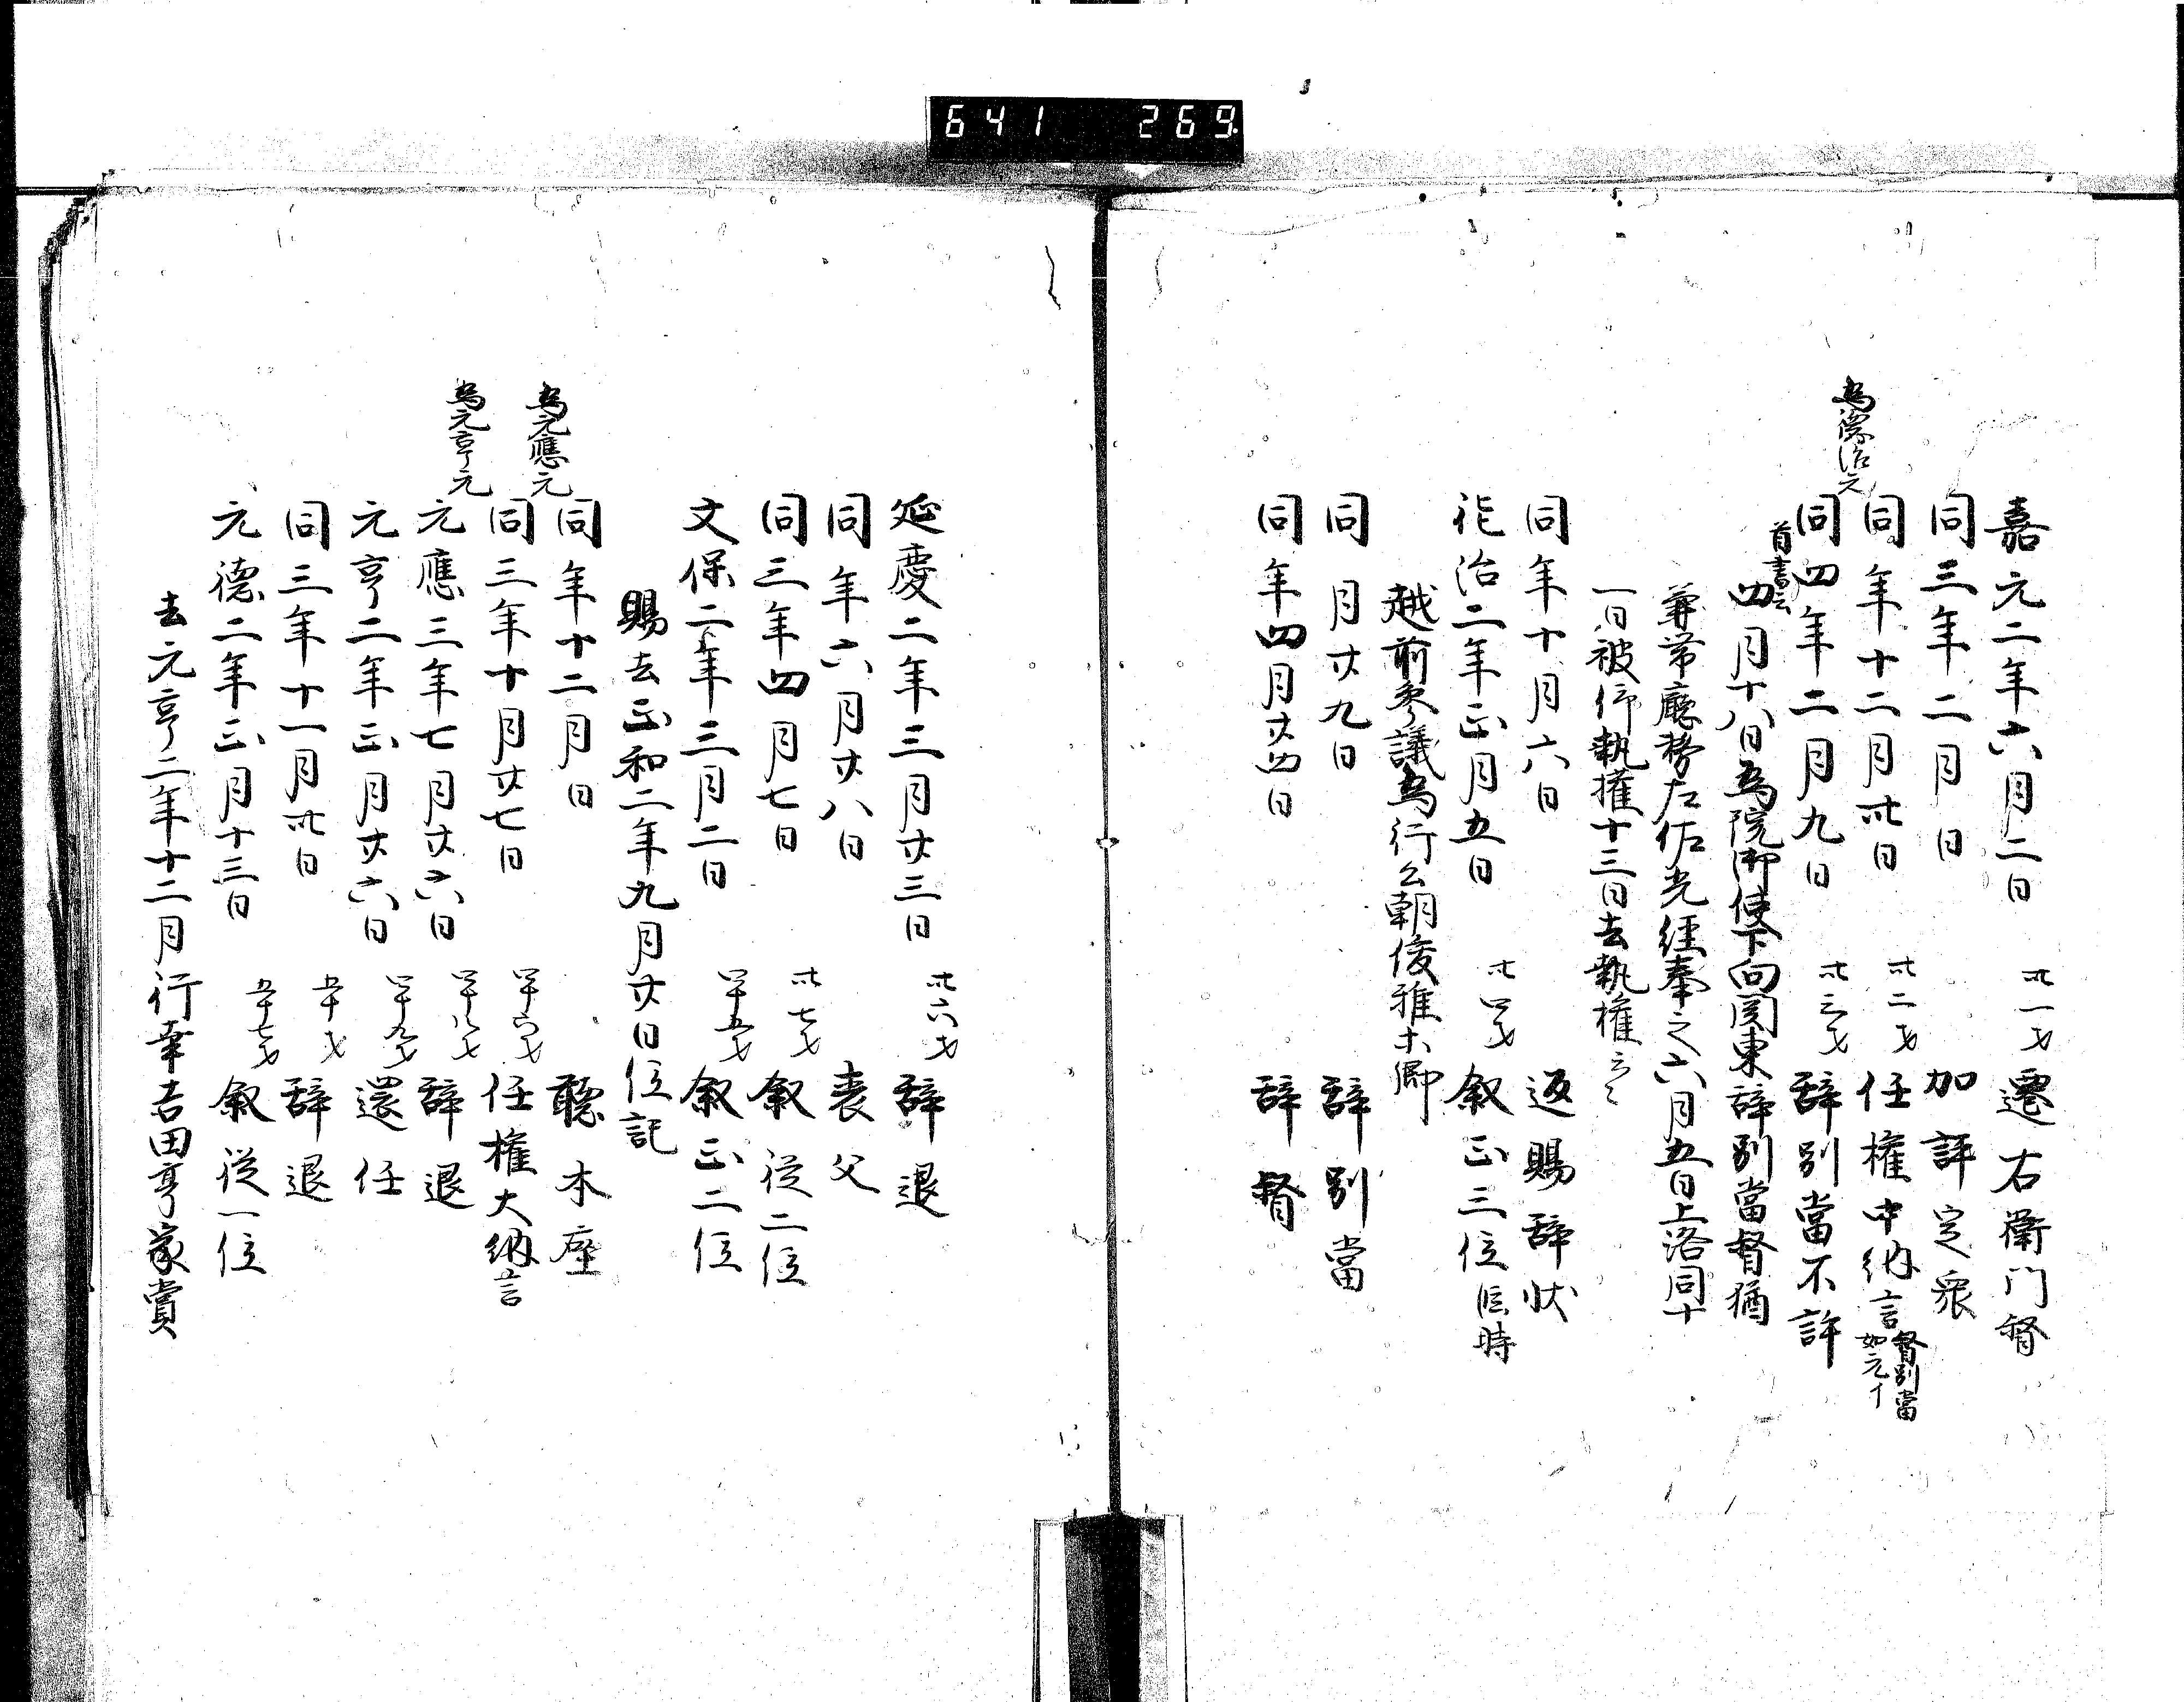 641 269.
嘉元二年六月二日 卅一才 遷右衛門督
同三年二月 日 加評定衆
同年十二月卅日 卅二才 任權中納言 督別當
如元イ
為德治元
同四年二月九日 卅三才 辞別當不許
首書云
四月十八日為院御使下向関東辞別當督猶
兼帯廳務左佐光経奉之六月五日上洛同十
一日被仰執權十三日去執權云々
同年十月六日 返賜辞状
德治二年正月五日 卅四才 叙正三位 臨時
越前参議為行公朝俊雅木卿
同 月廿九日 辞別當
同年四月廿四日 辞督
延慶二年三月廿三日 卅六才 辞退
同年六月廿八日 喪父
同三年四月七日 卅七才 叙従二位
文保二年三月二日 四十五才 叙正二位
賜去正和二年九月廿日位記
同年十二月 日 聴本座
為元應元
同三年十月廿七日 四十六才 任權大納言
為元亨元
元應三年七月廿六日 四十八才 辞退
元亨二年正月廿六日 四十九才 還任
同三年十一月卅日 五十才 辞退
元德二年正月十三日 五十七才 叙従一位
去元亨二年十二月行幸吉田亨家賞